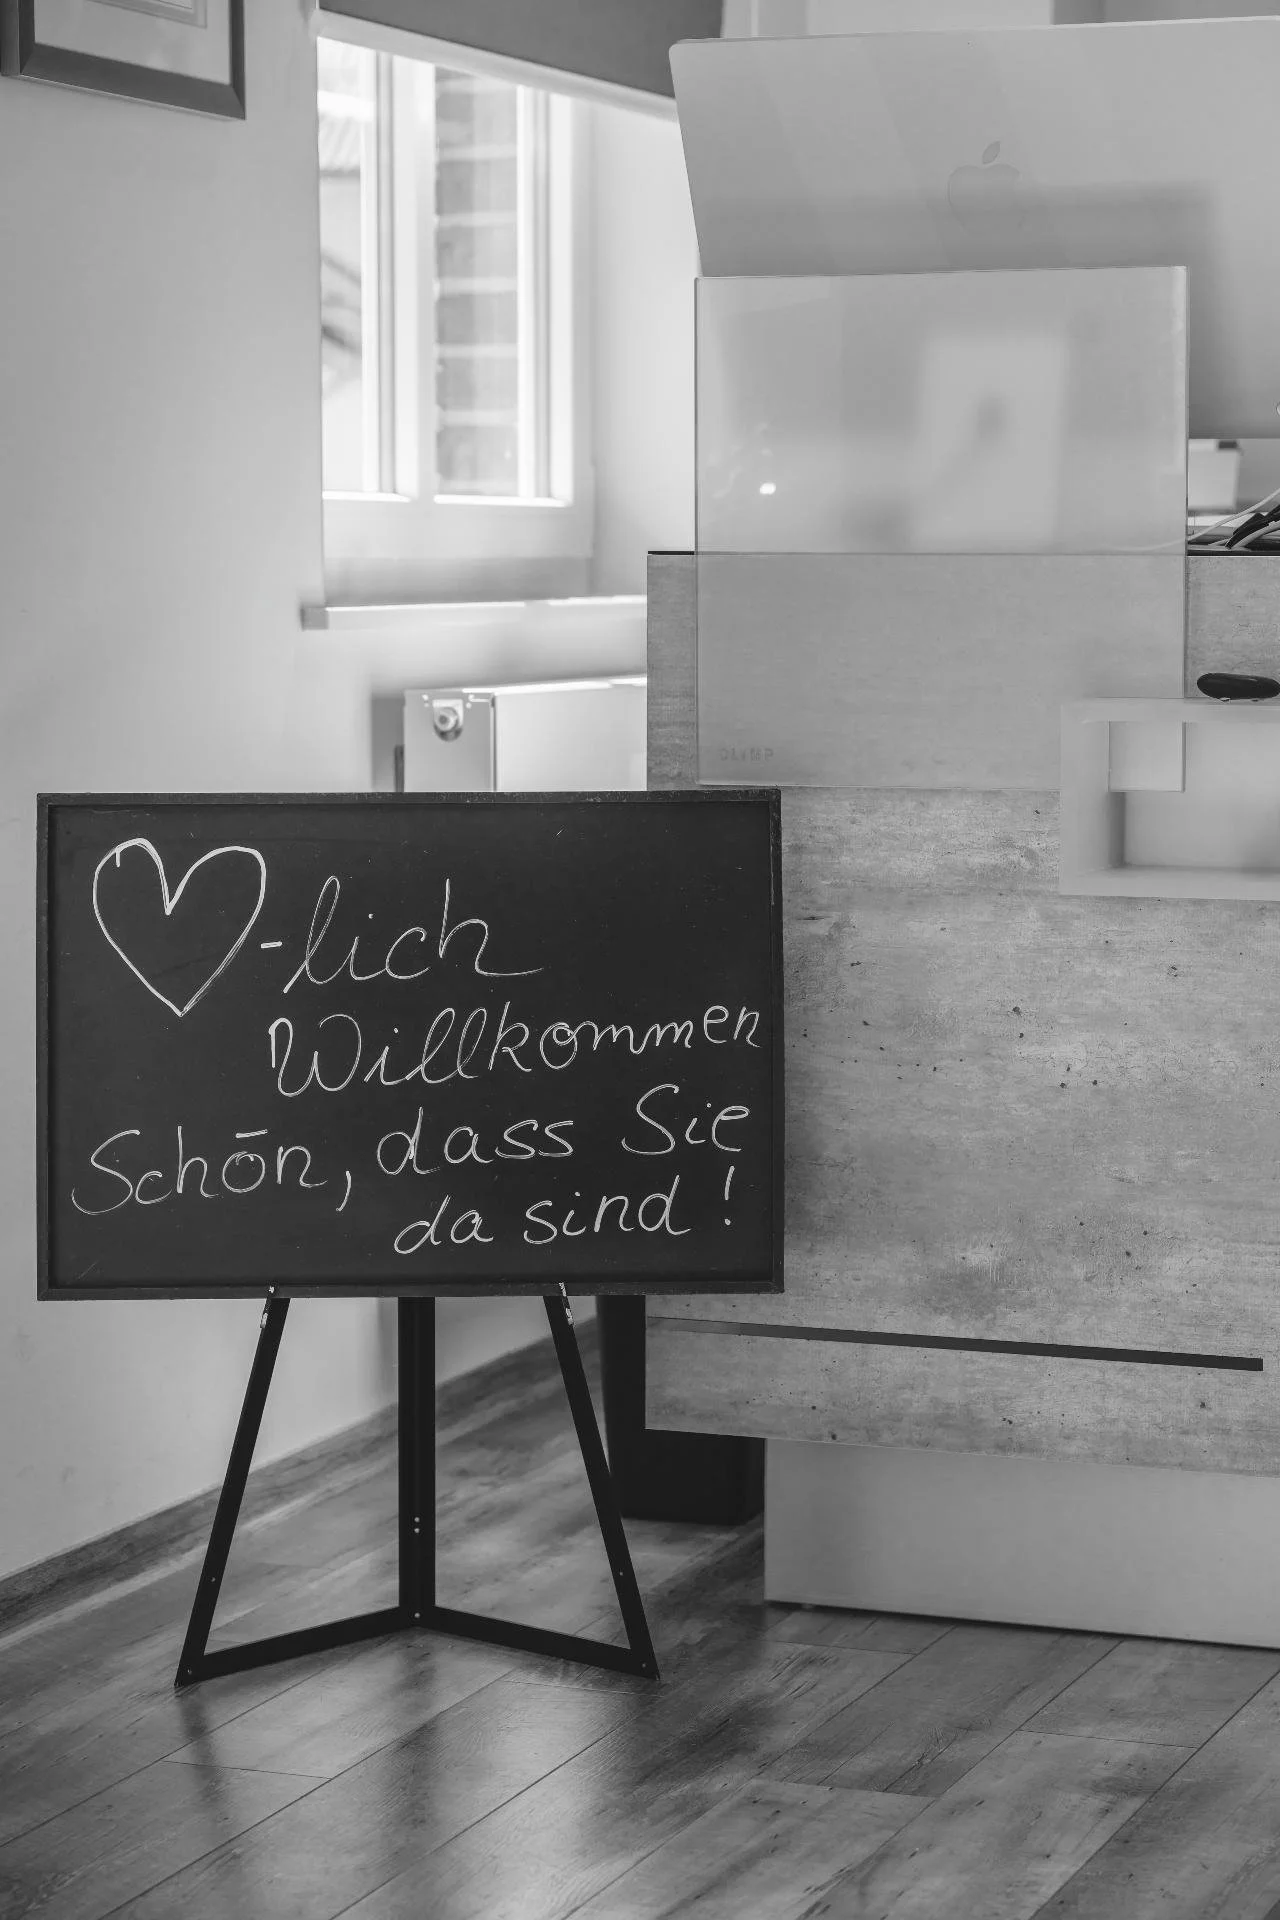 OLYMP
♡-lich
Willkommen
Schön, dass Sie
da sind!